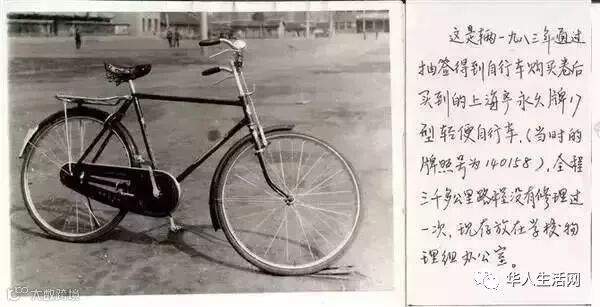 这是辆一九八三年通过
抽签得到自行车购买卷后
买到的上海产永久牌17
型轻便自行车.(当时的
牌照号为140158),全程
三千多公里路程没有修理过
一次,现存放在学校物
理组办公室。
大数跨境
华人生活网